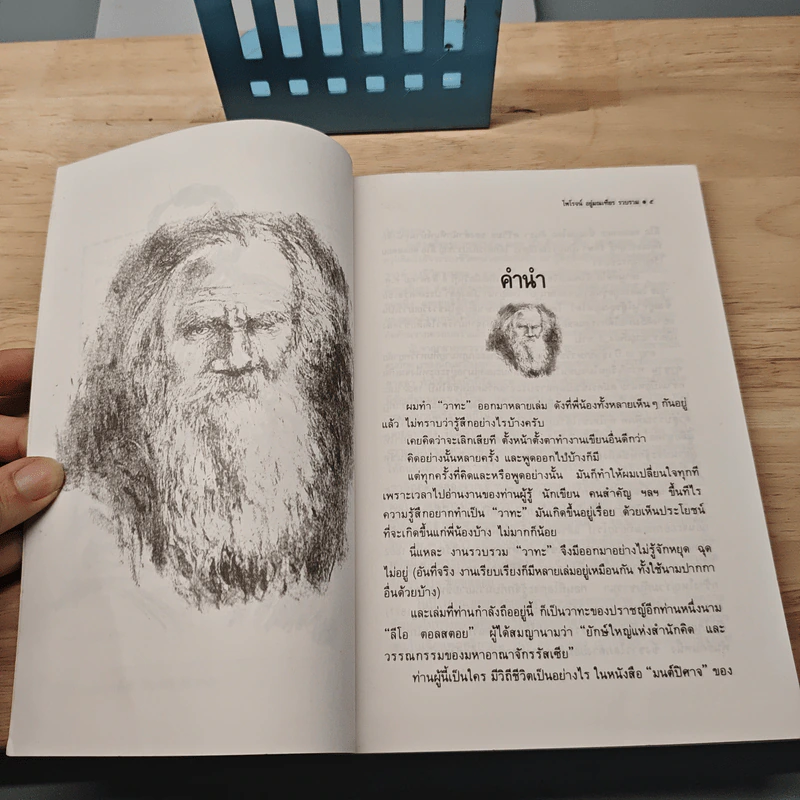 ไพโรจน์ อยู่มณเฑียร รวบรวม ๑ ๕
คำนำ
ผมทำ “วาทะ” ออกมาหลายเล่ม ดังที่พี่น้องทั้งหลายเห็นๆ กันอยู่
แล้ว ไม่ทราบว่ารู้สึกอย่างไรบ้างครับ
เคยคิดว่าจะเลิกเสียที ตั้งหน้าตั้งตาทำงานเขียนอื่นดีกว่า
คิดอย่างนั้นหลายครั้ง และพูดออกไปบ้างก็มี
แต่ทุกครั้งที่คิดและหรือพูดอย่างนั้น มันก็ทำให้ผมเปลี่ยนใจทุกที
เพราะเวลาไปอ่านงานของท่านผู้รู้ นักเขียน คนสำคัญ ฯลฯ ขึ้นทีไร
ความรู้สึกอยากทำเป็น “วาทะ” มันเกิดขึ้นอยู่เรื่อย ด้วยเห็นประโยชน์
ที่จะเกิดขึ้นแก่พี่น้องบ้าง ไม่มากก็น้อย
นี่แหละ งานรวบรวม “วาทะ” จึงมีออกมาอย่างไม่รู้จักหยุด ฉุด
ไม่อยู่ (อันที่จริง งานเรียบเรียงก็มีหลายเล่มอยู่เหมือนกัน ทั้งใช้นามปากกา
อื่นด้วยบ้าง)
และเล่มที่ท่านกำลังถืออยู่นี้ ก็เป็นวาทะของปราชญ์อีกท่านหนึ่งนาม
“ลีโอ ตอลสตอย” ผู้ได้สมญานามว่า “ยักษ์ใหญ่แห่งสำนักคิด และ
วรรณกรรมของมหาอาณาจักรรัสเซีย”
ท่านผู้นี้เป็นใคร มีวิถีชีวิตเป็นอย่างไร ในหนังสือ “มนต์ปีศาจ” ของ